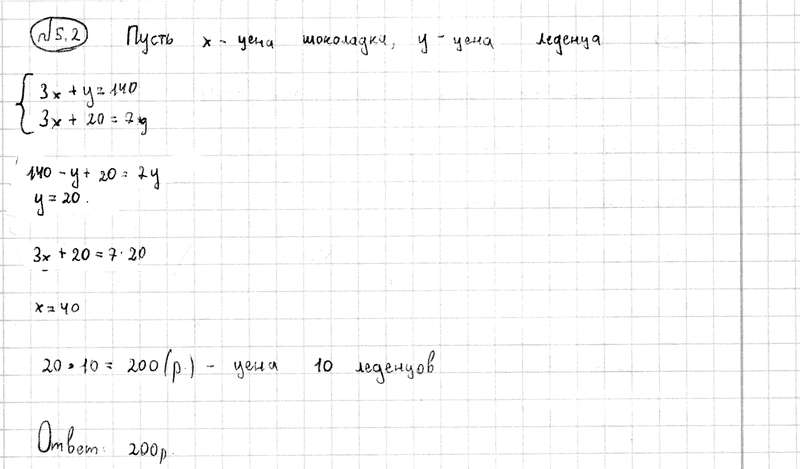 №5.2 Пусть x - цена шоколадки, y - цена леденца
3x + y = 140
3x + 20 = 7y
140 - y + 20 = 7y
y = 20.
3x + 20 = 7·20
x = 40
20·10 = 200(р.) - цена 10 леденцов
Ответ: 200р.